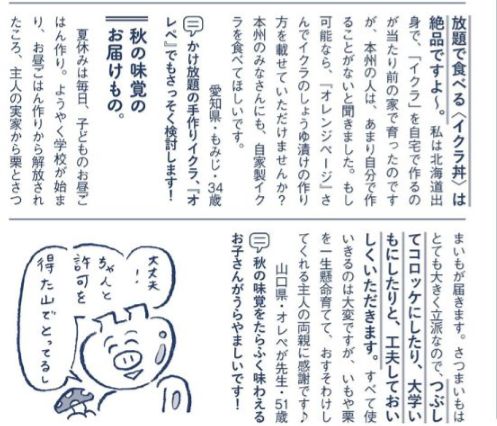 放題で食べる〈イクラ丼〉は
絶品ですよ〜。私は北海道出
身で、「イクラ」を自宅で作るの
が当たり前の家で育ったのです
が、本州の人は、あまり自分で作
ることがないと聞きました。もし
可能なら、『オレンジページ』さ
んでイクラのしょうゆ漬けの作り
方を載せていただけませんか?
本州のみなさんにも、自家製イク
ラを食べてほしいです。
愛知県・もみじ・34歳
かけ放題の手作りイクラ、『オ
レペ』でもさっそく検討します!
秋の味覚の
お届けもの。
夏休みは毎日、子どものお昼ご
はん作り。ようやく学校が始ま
り、お昼ごはん作りから解放され
たころ、主人の実家から栗とさつ
まいもが届きます。さつまいもは
とても大きく立派なので、つぶし
てコロッケにしたり、大学い
もにしたりと、工夫しておい
しくいただきます。すべて使
いきるのは大変ですが、いもや栗
を一生懸命育てて、おすそわけし
てくれる主人の両親に感謝です♪
山口県・オレペが先生・51歳
秋の味覚をたらふく味わえる
お子さんがうらやましいです!
大丈夫!
ちゃんと
許可を
得た山でとってるし